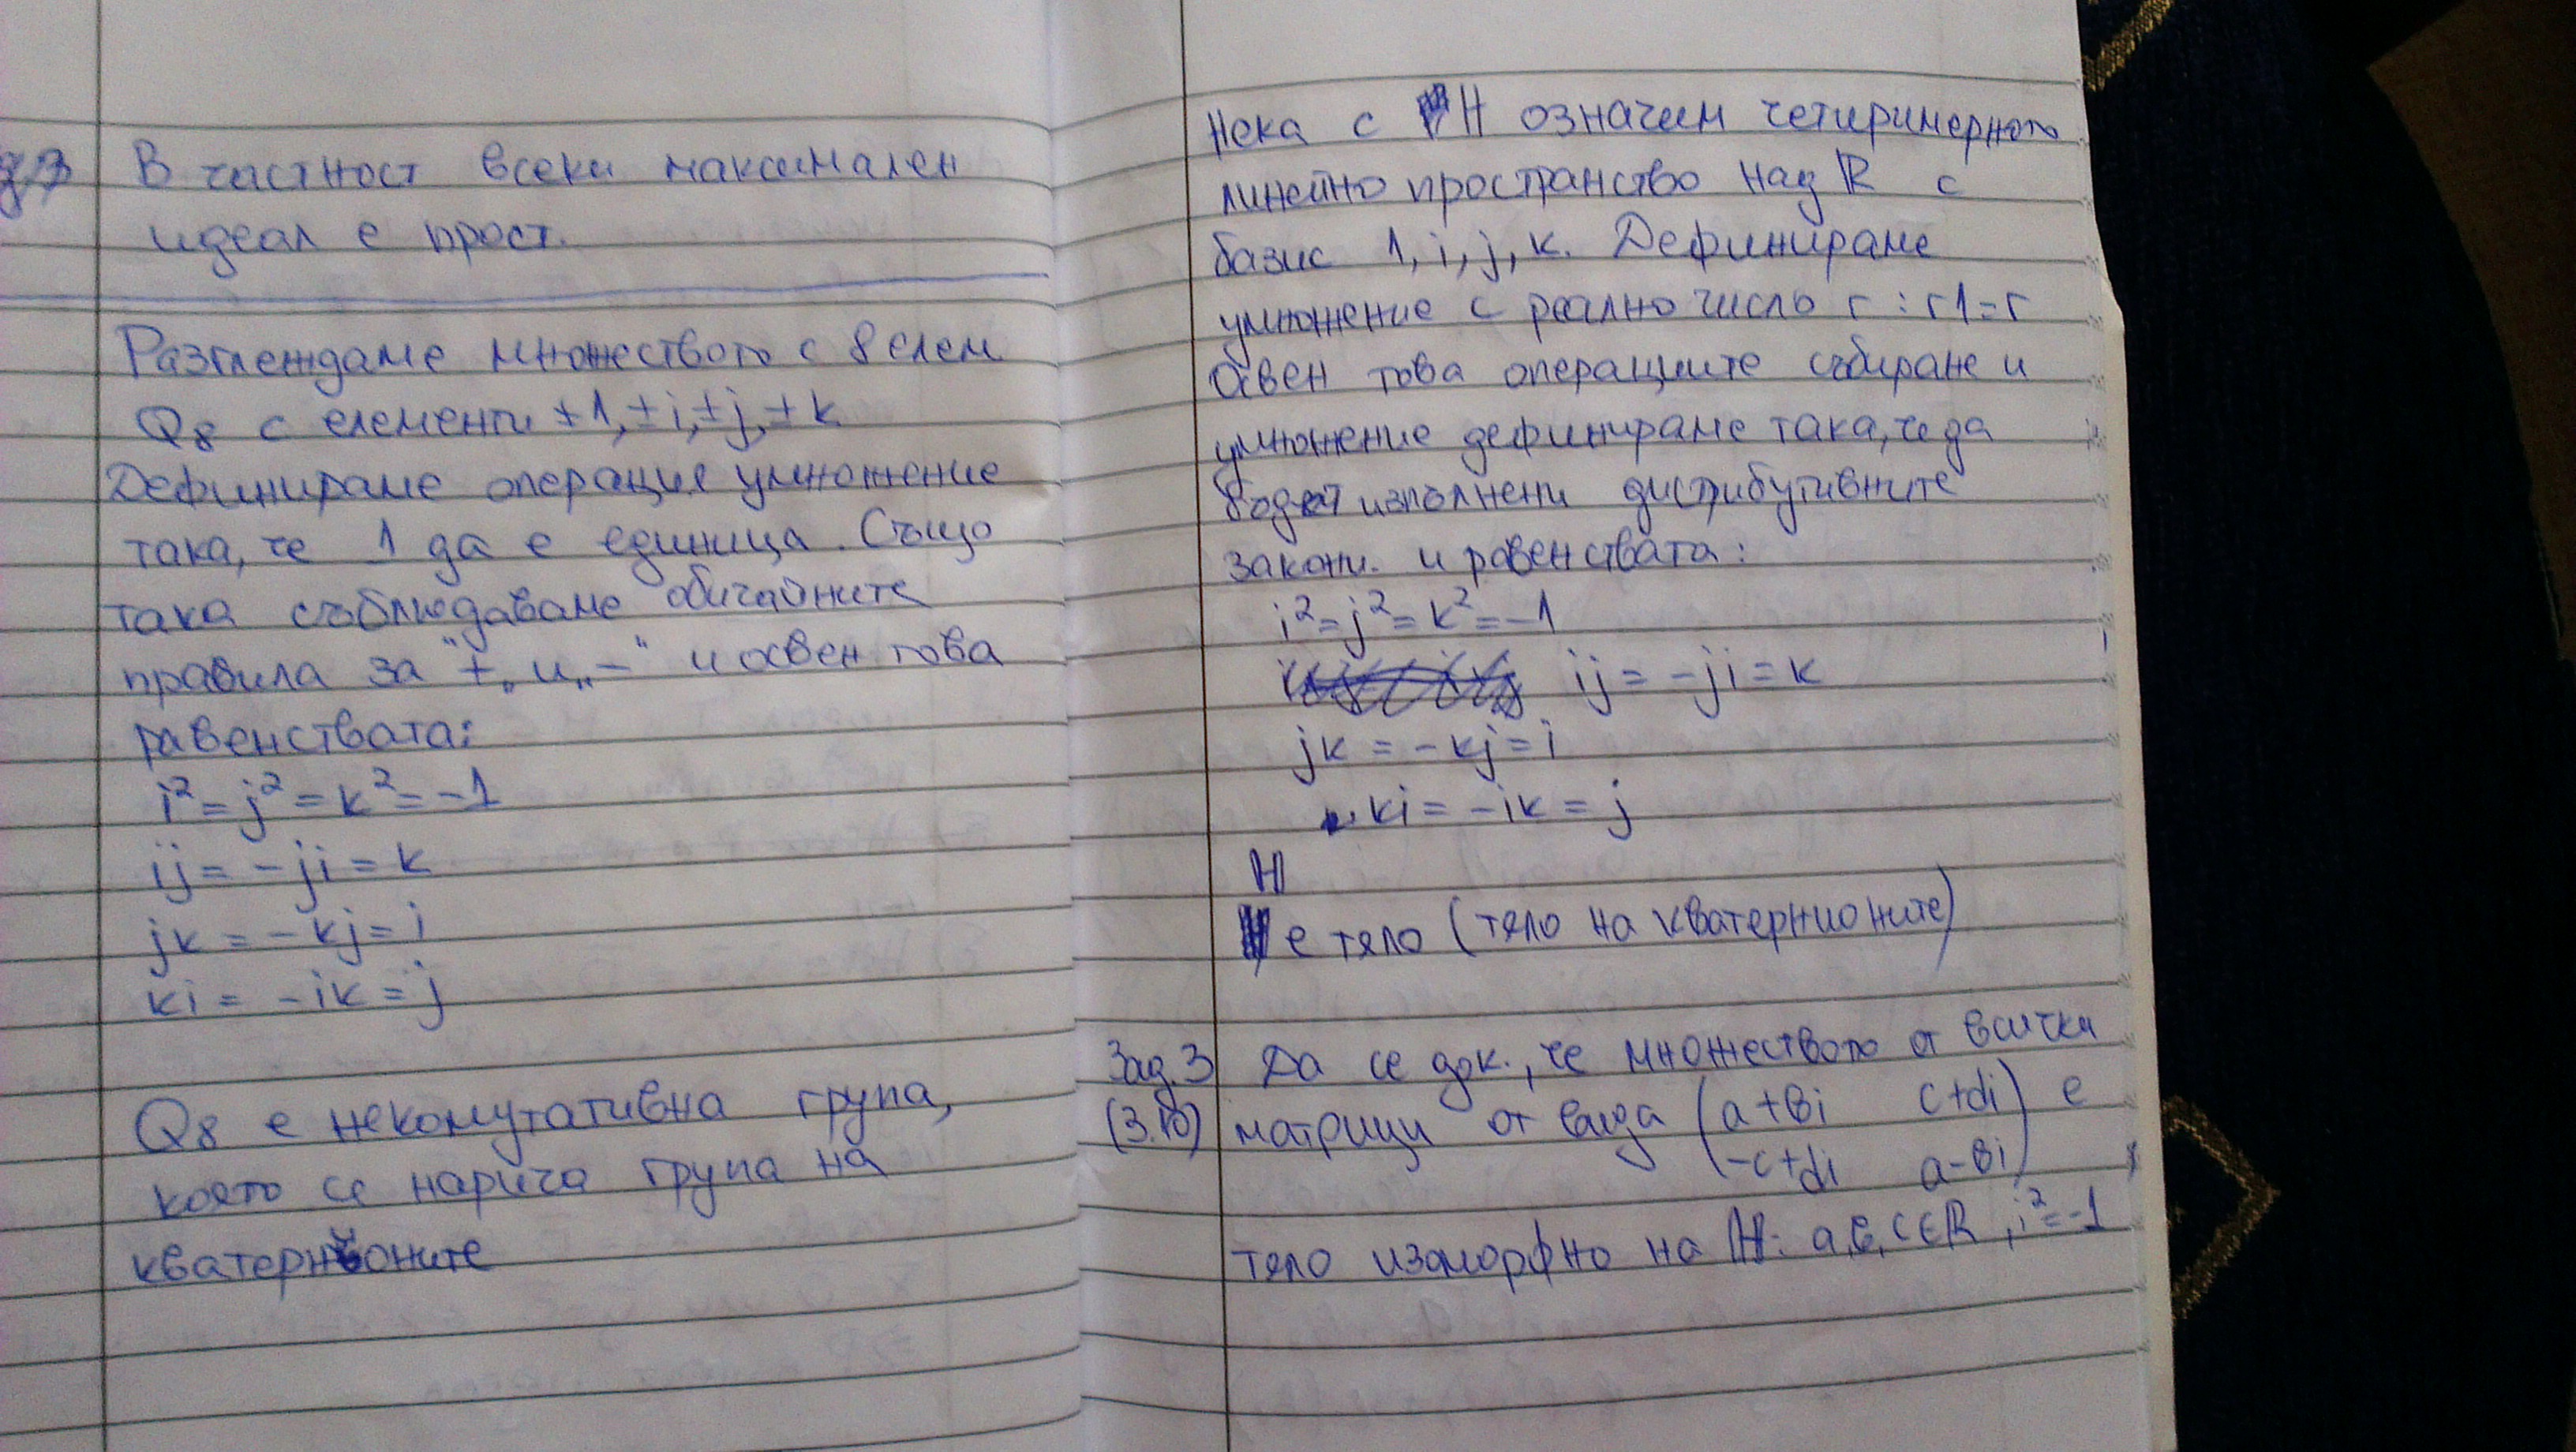 В частност всеки максимален
идеал е прост.
Разглеждаме множеството с 8 елем
Q8 с елементи ±1, ±i, ±j, ±k
Дефинираме операция умножение
така, че 1 да е единица. Също
така съблюдаваме обичайните
правила за "+„ и „-" и освен това
равенствата:
i² = j² = k² = -1
ij = -ji = k
jk = -kj = i
ki = -ik = j
Q8 е некомутативна група,
която се нарича група на
кватернионите
Нека с H означим четиримерното
линейно пространство над ℝ с
базис 1, i, j, k. Дефинираме
умножение с реално число r : r1=r
Освен това операциите събиране и
умножение дефинираме така, че да
бъдат изпълнени дистрибутивните
закони. и равенствата:
i² = j² = k² = -1
ij = -ji = k
jk = -kj = i
ki = -ik = j
H
е тяло (тяло на кватернионите)
Зад. 3 Да се док., че множеството от всички
(3.10) матрици от вида (a+вi c+di) е
(-c+di a-вi)
тяло изоморфно на H. a, в, c ∈ ℝ, i² = -1